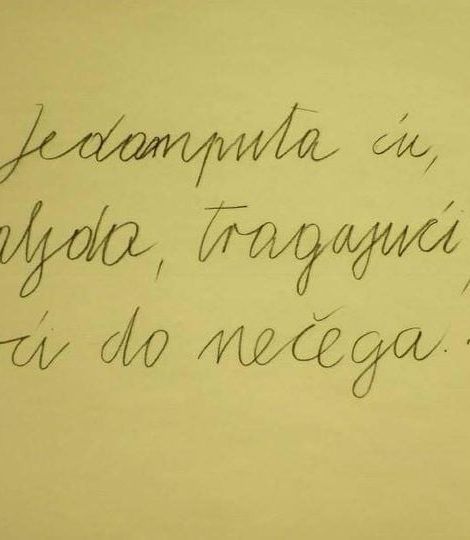 Jedamputa ću,
aljda, tragajući,
ći do nečega..